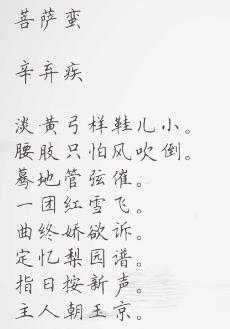 菩萨蛮
辛弃疾
淡黄弓样鞋儿小。
腰肢只怕风吹倒。
蓦地管弦催。
一团红雪飞。
曲终娇欲诉。
定忆梨园谱。
指日按新声。
主人朝玉京。